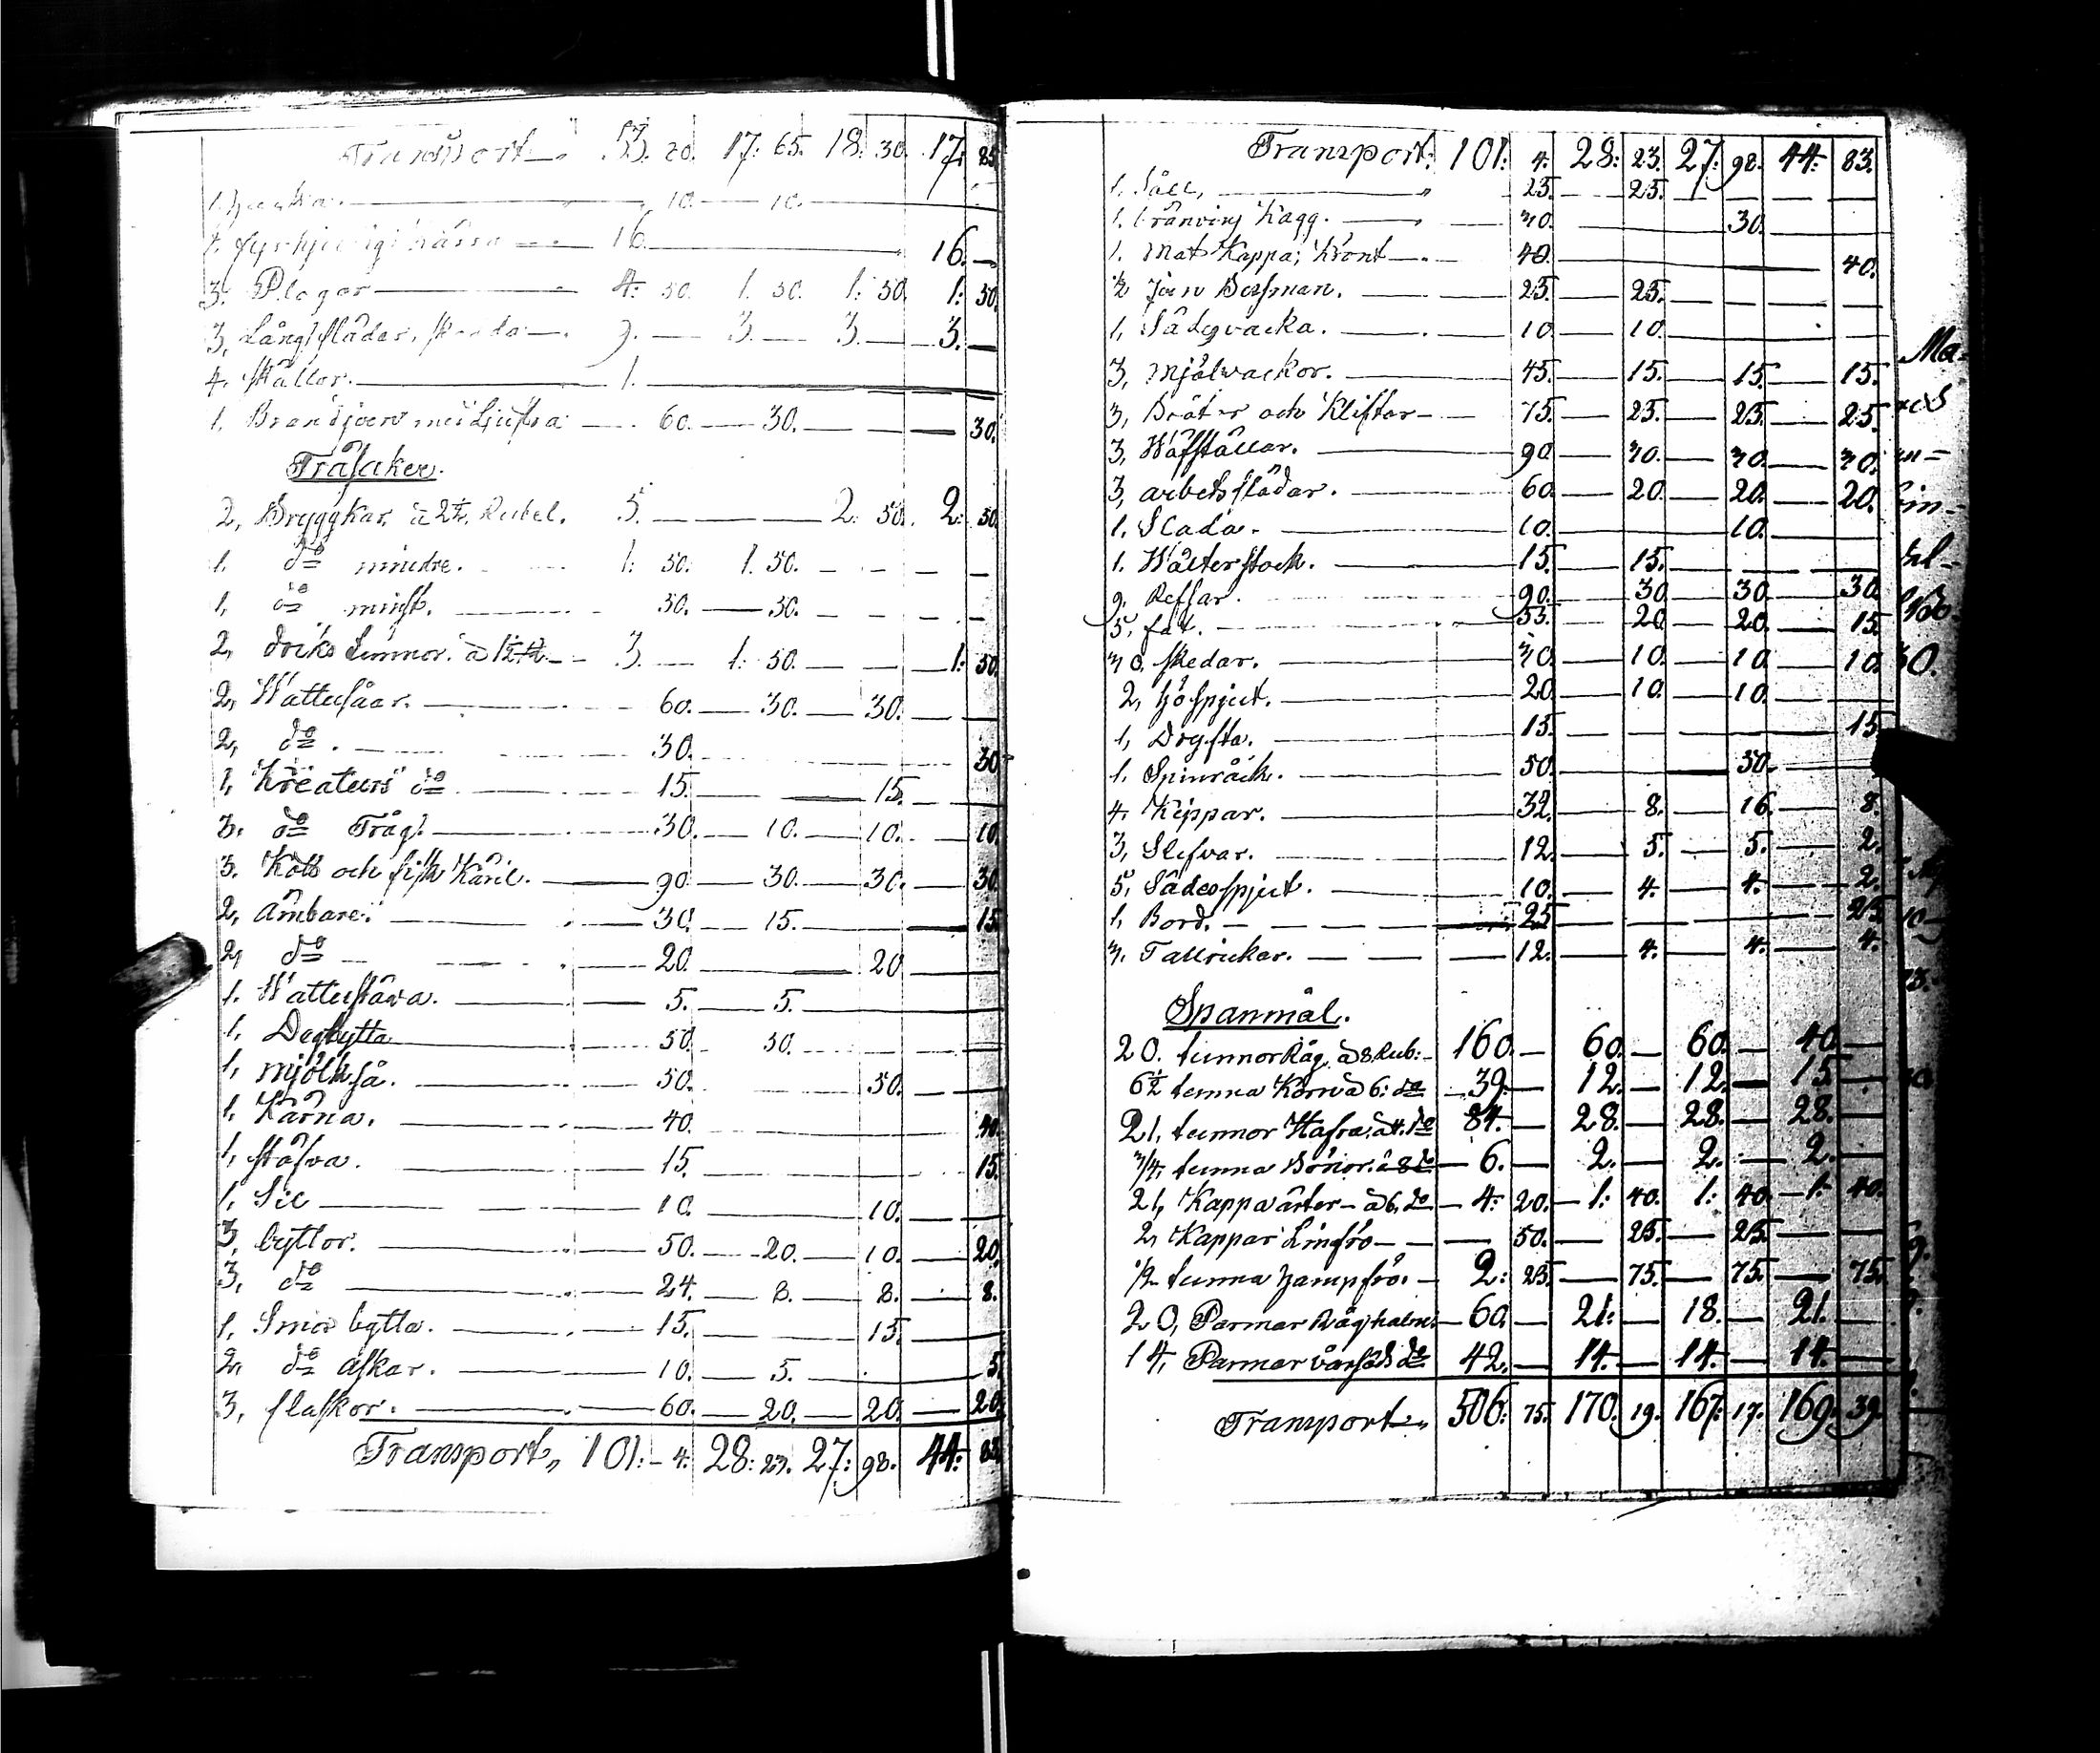 Transport 53. 20. 17: 65. 18: 30. 17: 85.
1. — 10. — 10. —
1. 16. — 16. —
3. Plogar — 4: 50. 1. 50. 1: 50. 1: 50.
3, Långslädar, — 9. — 3. — 3. — 3. —
4. — 1. —
1. Brandjern med — 60. — 30. — 30.
Träsaker.
2, Bryggkar à 2½ Rubel. 5. — 2: 50. 2: 50.
1. do mindre. 1: 50. 1. 50. — — —
1, do minst. — 50. — 50. — — —
2, dricks tunnor. à 1½ — 3. — 1: 50. — 1: 50.
2, Wattusåar. — 60. — 30. — 30. —
2, do. — 30. 30.
1, Kreaturs do — 15. — 15. —
3. do Tråg. — 30. — 10. — 10. — 10.
3. Kött och fisk Käril. — 90. — 30. — 30. — 30.
2, Ämbare. — 30. — 15. — 15.
2, do — 20. — 20. —
1. Wattuskåva. — 5. — 5. —
1, Degbytta — 50. 50. —
1, mjölkså. — 50. — 50. —
1. Kärna. — 40. 40.
1, skåfva. — 15. — 15.
1, Sil — 10. — 10. —
3, byttor. — 50. — 20. — 10. — 20.
3, do — 24. — 8. — 8. — 8.
1, Smör bytta. — 15. — 15. —
2. do Askar. — 10. — 5. — 5.
3, flaskor. — 60. — 20. — 20. — 20.
Transport, 101: 4: 28: 23. 27: 98. 44: 83.
Transport: 101: 4: 28: 23. 27: 98. 44: 83.
1. Såll, — 25. — 25. —
1. bränvins Kagg. — 30. — 30. —
1. Mat Kappa; Krönt — 40. — 40.
½ Jern Besman. — 25. — 25. —
1, Sädesvacka. — 10. — 10. —
3, Mjölvackor. — 45. — 15. — 15. — 15.
3, Bråtor och Kliftor — 75. — 25. — 25. — 25.
3, Wäfställar. — 90. — 30. — 30. — 30.
3, arbetsslädar. — 60. — 20. — 20. — 20.
1. Slada. — 10. — 10. —
1. Wälterstock. — 15. — 15. —
9. Refsar. — 90. — 30. — 30. — 30.
5, fat. — 55. — 20. — 20. — 15.
30. skedar. — 30. — 10. — 10. — 10.
2, höspjut. — 20. — 10. — 10. —
1, Drysta. — 15. — 15.
1. Spinråck. — 50. — 50. —
4. Kippar. — 32. — 8. — 16. — 8.
3, Slefvar. — 12. — 5. — 5. — 2.
5, Sädesspjut. — 10. — 4. — 4. — 2.
1, Bord. — 25. — 25.
3. Tallrickar. — 12. — 4. — 4. — 4.
Spanmål.
20. tunnor Råg. à 8 Rub: — 160. — 60. — 60. — 40. —
6½ tunna Korn à 6: do — 39. — 12. — 12. — 15. —
21, tunnor Hafra, à 4. do 84. — 28. — 28. — 28. —
¾, tunna Bönor. à 8 do — 6. — 2. — 2. — 2. —
21, Kappa ärter — à 6, do — 4: 20. — 1: 40. 1: 40. — 1: 40.
2, Kappar Linfrö — 50. — 25. — 25. —
½ tunna hampfrö. — 2: 25. — 75. — 75. — 75.
20, Parmar Råghalm. — 60. — 21: — 18. — 21. —
14, Parmar vårsäds do 42. — 14. — 14. — 14. —
Transport, 506: 75. 170. 19. 167: 17. 169. 39.